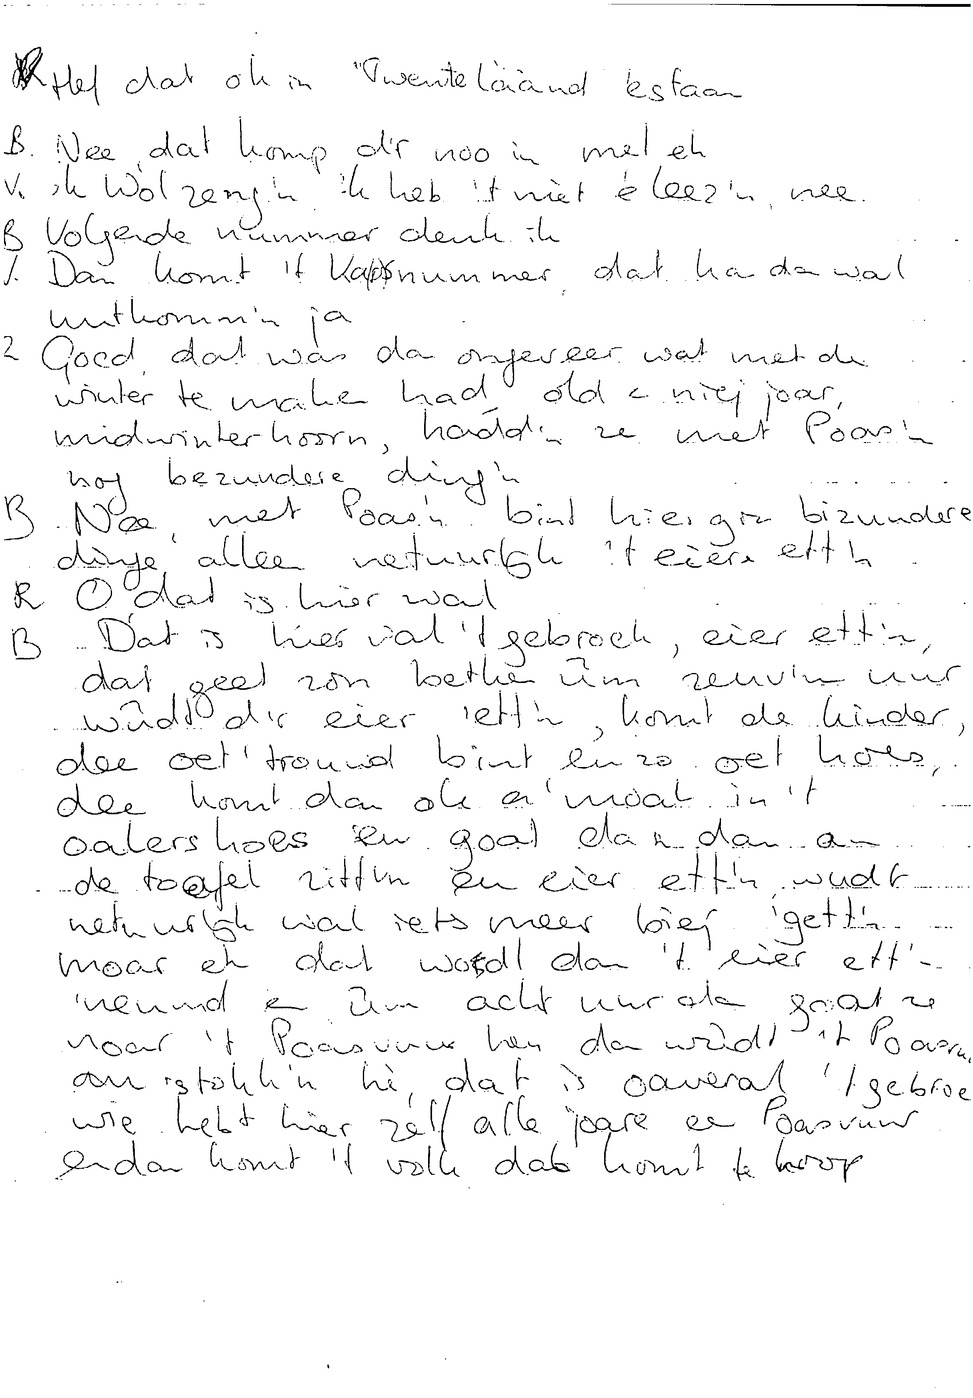 R Hef dat ok in "Twentelaand estaan
B. Nee, dat komp d'r noo in met eh
V. ik wol zeng'n ik heb 't niet eleez'n, nee.
B Volgende nummer denk ik
Dan komt 't nummer, dat ka da wal
uutkomm'n ja
Goed, dat was da ongeveer wat met de
winter te maken had, old e niej joar,
midwinterhoorn, hadd'n ze met Poas'n
nog bezundere ding'n
B Nee, met Poas'n bint hier gin bizundere
dinge, alleen netuurlijk 't eiere ett'n
R O dat is hier wal
B Dat is hier wal 't gebroek, eier ett'n,
dat geet zon betken üm zeuv'n uur
wûdt d'r eier 'ett'n, komt de kinder,
dee oet'trouwd bint en zo oet hoes,
dee komt dan ok a'moal in 't
oalershoes en goat dan dan an
de toafel zitt'n en eier ett'n, wudt
netuurlijk wal iets meer biej 'gett'n
moar eh dat wordt dan 't eier ett'n
'neumd e üm acht uur ok goat ze
noar 't Poasvuur hen dan wûdt 't Poasvu
an 'stokk'n hè, dat is oaveral 't gebroe
wie hebt hier zelf alle joare en Poasvuur
en dan komt 't volk dat komt te hoop